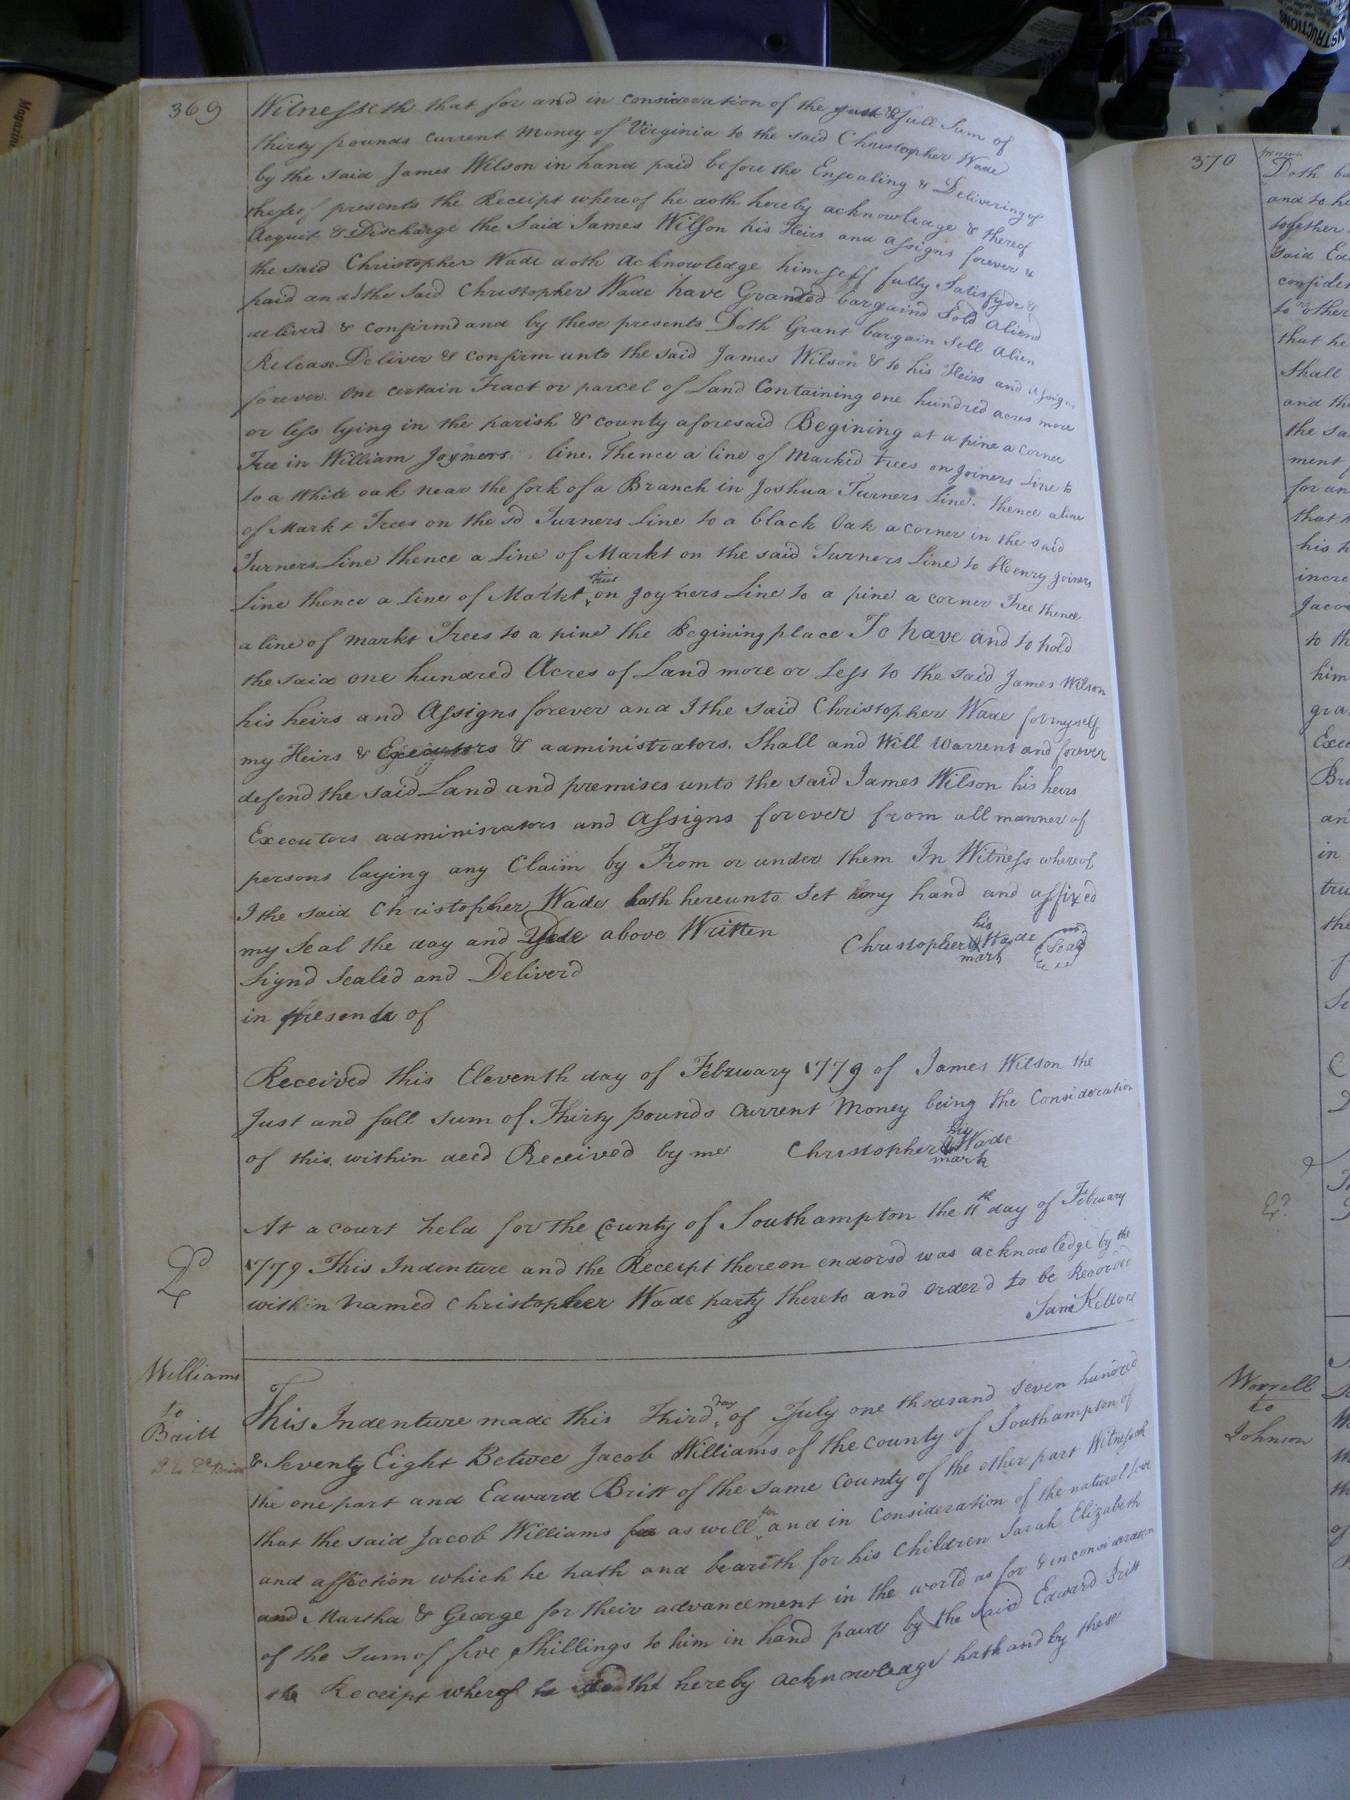 369
Witnesseth that for and in consideration of the just & full Sum of
thirty pounds current Money of Virginia to the said Christopher Wade
by the said James Wilson in hand paid before the Ensealing & Delivering of
theses presents the Receipt whereof he doth hereby acknowledge & thereof
Acquit & Discharge the Said James Willson his Heirs and assigns forever &
the said Christopher Wade doth Acknowledge himself fully Satisfyde &
paid and the said Christopher Wade have Granted bargaind Sold Aliend
deliverd & confirmd and by these presents Doth Grant bargain Sell Alien
Release Deliver & Confirm unto the said James Wilson & to his Heirs and assigns
forever. One certain Tract or parcel of Land Containing one hundred acres more
or less lying in the parish & county aforesaid Begining at a pine a corner
Tree in William Joyners line. Thence a line of Marked trees on Joiners Line to
to a White oak near the fork of a Branch in Joshua Turners Line. thence a line
of Markt Trees on the sd Turners Line to a black Oak a corner in the said
Turners Line thence a Line of Markt on the said Turners Line to Henry Joiners
Line thence a Line of Markt trees on Joyners Line to a pine a corner Tree thence
a line of markt Trees to a pine the Begining place To have and to hold
the said one hundred Acres of Land more or Less to the said James Wilson
his heirs and Assigns forever and I the said Christopher Wade for myself
my Heirs & Executors & administrators. Shall and Will Warrent and forever
defend the said Land and premises unto the said James Wilson his heirs
Executors administrators and Assigns forever from all manner of
persons laying any Claim by From or under them In Witness whereof
I the said Christopher Wade hath hereunto Set my hand and affixed
my Seal the day and Yeae above Written Christopher his mark Wade Seal
Signd Sealed and Deliverd
in presents of
Received this Eleventh day of February 1779 of James Wilson the
Just and full sum of Thirty pounds Current Money being the Consideration
of this within deed Received by me Christopher his mark Wade
At a court held for the County of Southampton the 11th day of February
1779 This Indenture and the Receipt thereon endorsd was acknowledge by the
within named Christopher Wade party thereto and orderd to be Recorded
Saml Kello
Williams
to
Britt
This Indenture made this Third day of July one thousand seven hundred
& Seventy Eight Betwee Jacob Williams of the county of Southampton of
the one part and Edward Britt of the same County of the other part Witnesseth
that the said Jacob Williams as well for and in Consideration of the natural Love
and affection which he hath and beareth for his Children Sarah Elizabeth
and Martha & George for their advancement in the world as for & in consideration
of the sum of five Shillings to him in hand paid by the said Edward Britt
the Receipt wherof he doth hereby acknowledge hath and by these
370
Doth
and to
together
said
to other
that he
Shall
and the
the sa
ment
for an
that
his h
incre
Jaco
to th
him
gra
Exec
Br
an
in
tru
the
Worrell
to
Johnson
INSTRUCTIONS
Magazine